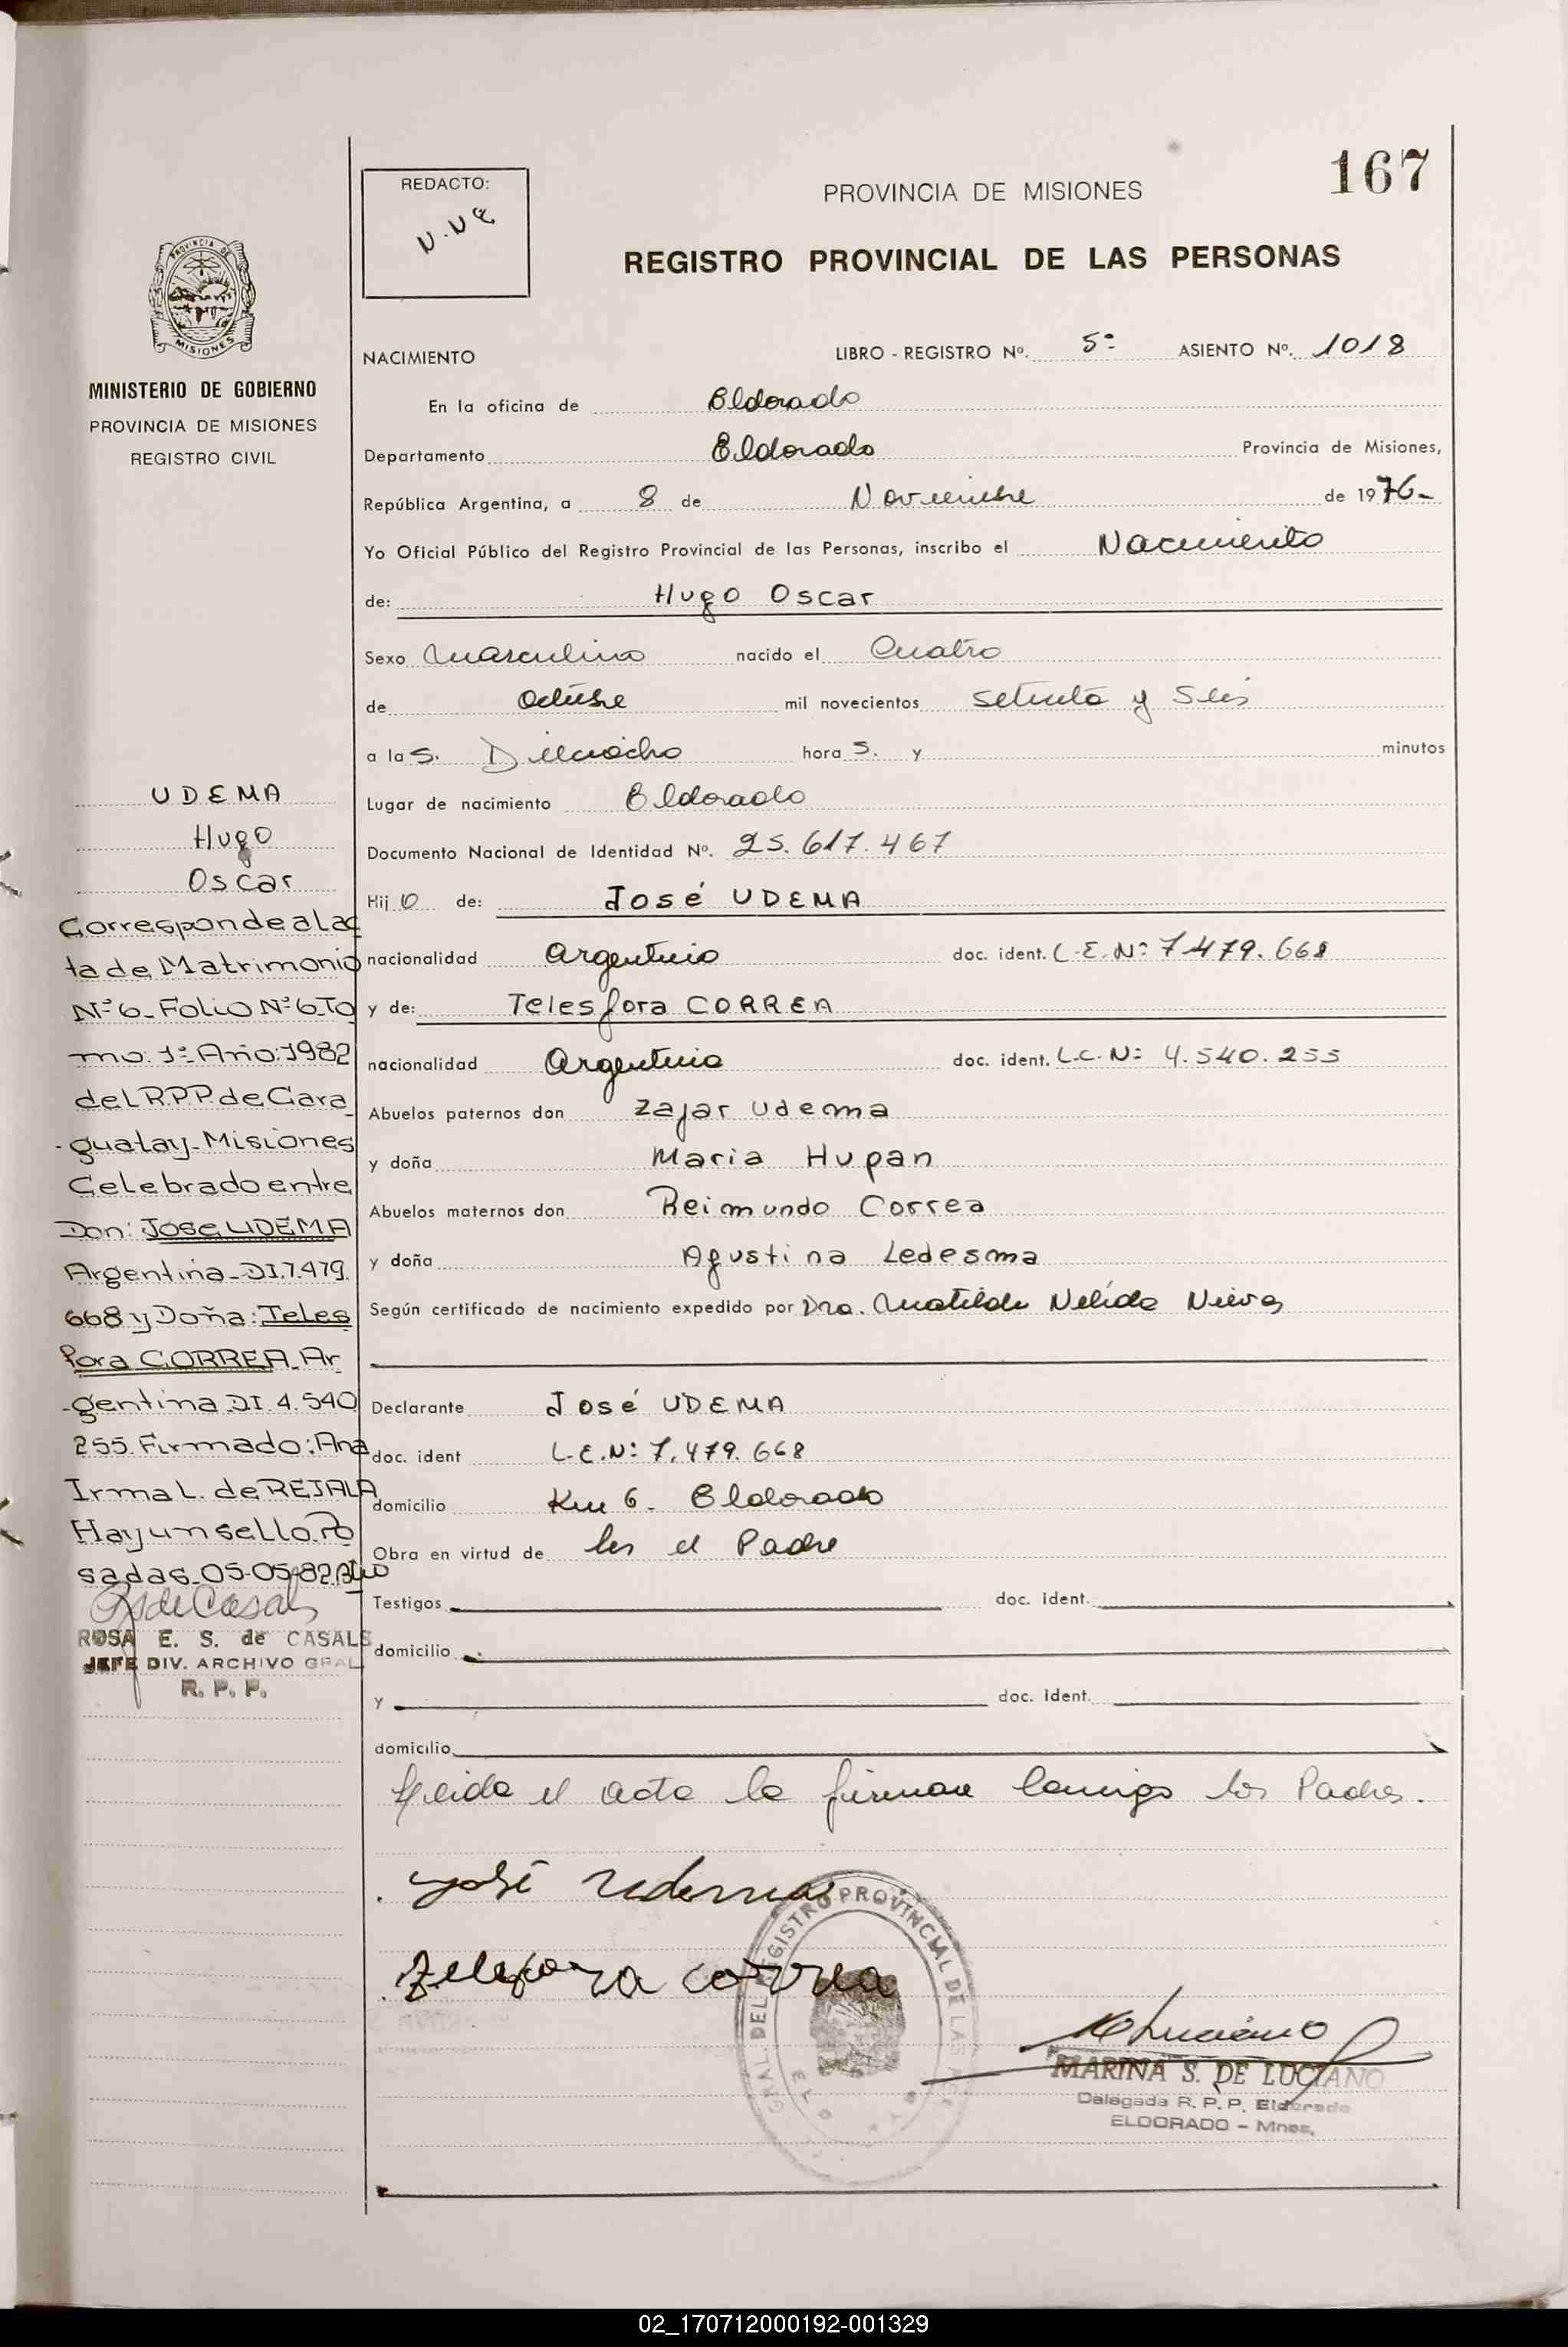 167
REDACTO:
N.N.E
PROVINCIA DE MISIONES
REGISTRO PROVINCIAL DE LAS PERSONAS
PROVINCIA DE
MISIONES
MINISTERIO DE GOBIERNO
PROVINCIA DE MISIONES
REGISTRO CIVIL
NACIMIENTO LIBRO - REGISTRO Nº. 5º ASIENTO Nº. 1018
En la oficina de Eldorado
Departamento Eldorado Provincia de Misiones,
República Argentina, a 8 de Noviembre de 1976-
Yo Oficial Público del Registro Provincial de las Personas, inscribo el Nacimiento
de: Hugo Oscar
Sexo Masculino nacido el Cuatro
de Octubre mil novecientos setenta y seis
a las. Dieciocho horas. y minutos
Lugar de nacimiento Eldorado
Documento Nacional de Identidad Nº. 25.617.467
Hijo de: José UDEMA
nacionalidad Argentino doc. ident. L.E.Nº 7.479.668
y de: Telesfora CORREA
nacionalidad Argentina doc. ident. L.C.Nº 4.540.255
Abuelos paternos don Zajar Udema
y doña Maria Hupan
Abuelos maternos don Reimundo Correa
y doña Agustina Ledesma
Según certificado de nacimiento expedido por Dra. Matilde Nélida
Declarante José UDEMA
doc. ident L.E.Nº 7.479.668
domicilio Km 6. Eldorado
Obra en virtud de ser el Padre
Testigos doc. ident.
domicilio
y doc. ident.
domicilio
Leída el acta la firman conmigo los Padres.
José Udema
Telesfora Correa
GRAL. DEL REGISTRO PROVINCIAL DE LAS
MARINA S. DE LUCIANO
Delegada R. P. P. Eldorado
ELDORADO - Mnes.
UDEMA
Hugo
Oscar
Corresponde a la ac
ta de Matrimonio
Nº 6- Folio Nº 6-To
mo: 1º Año: 1982
del R.P.P. de Cara
-guatay- Misiones
Celebrado entre
Don: Jose UDEMA
Argentina-DI.7.479.
668 y Doña: Teles
fora CORREA-Ar
-gentina DI. 4.540
255. Firmado: Ana
Irma L. de REJALA
Hay un sello. Po
sadas-05-05-82
R S de Casals
ROSA E. S. de CASALS
JEFE DIV. ARCHIVO GRAL.
R. P. P.
02_170712000192-001329